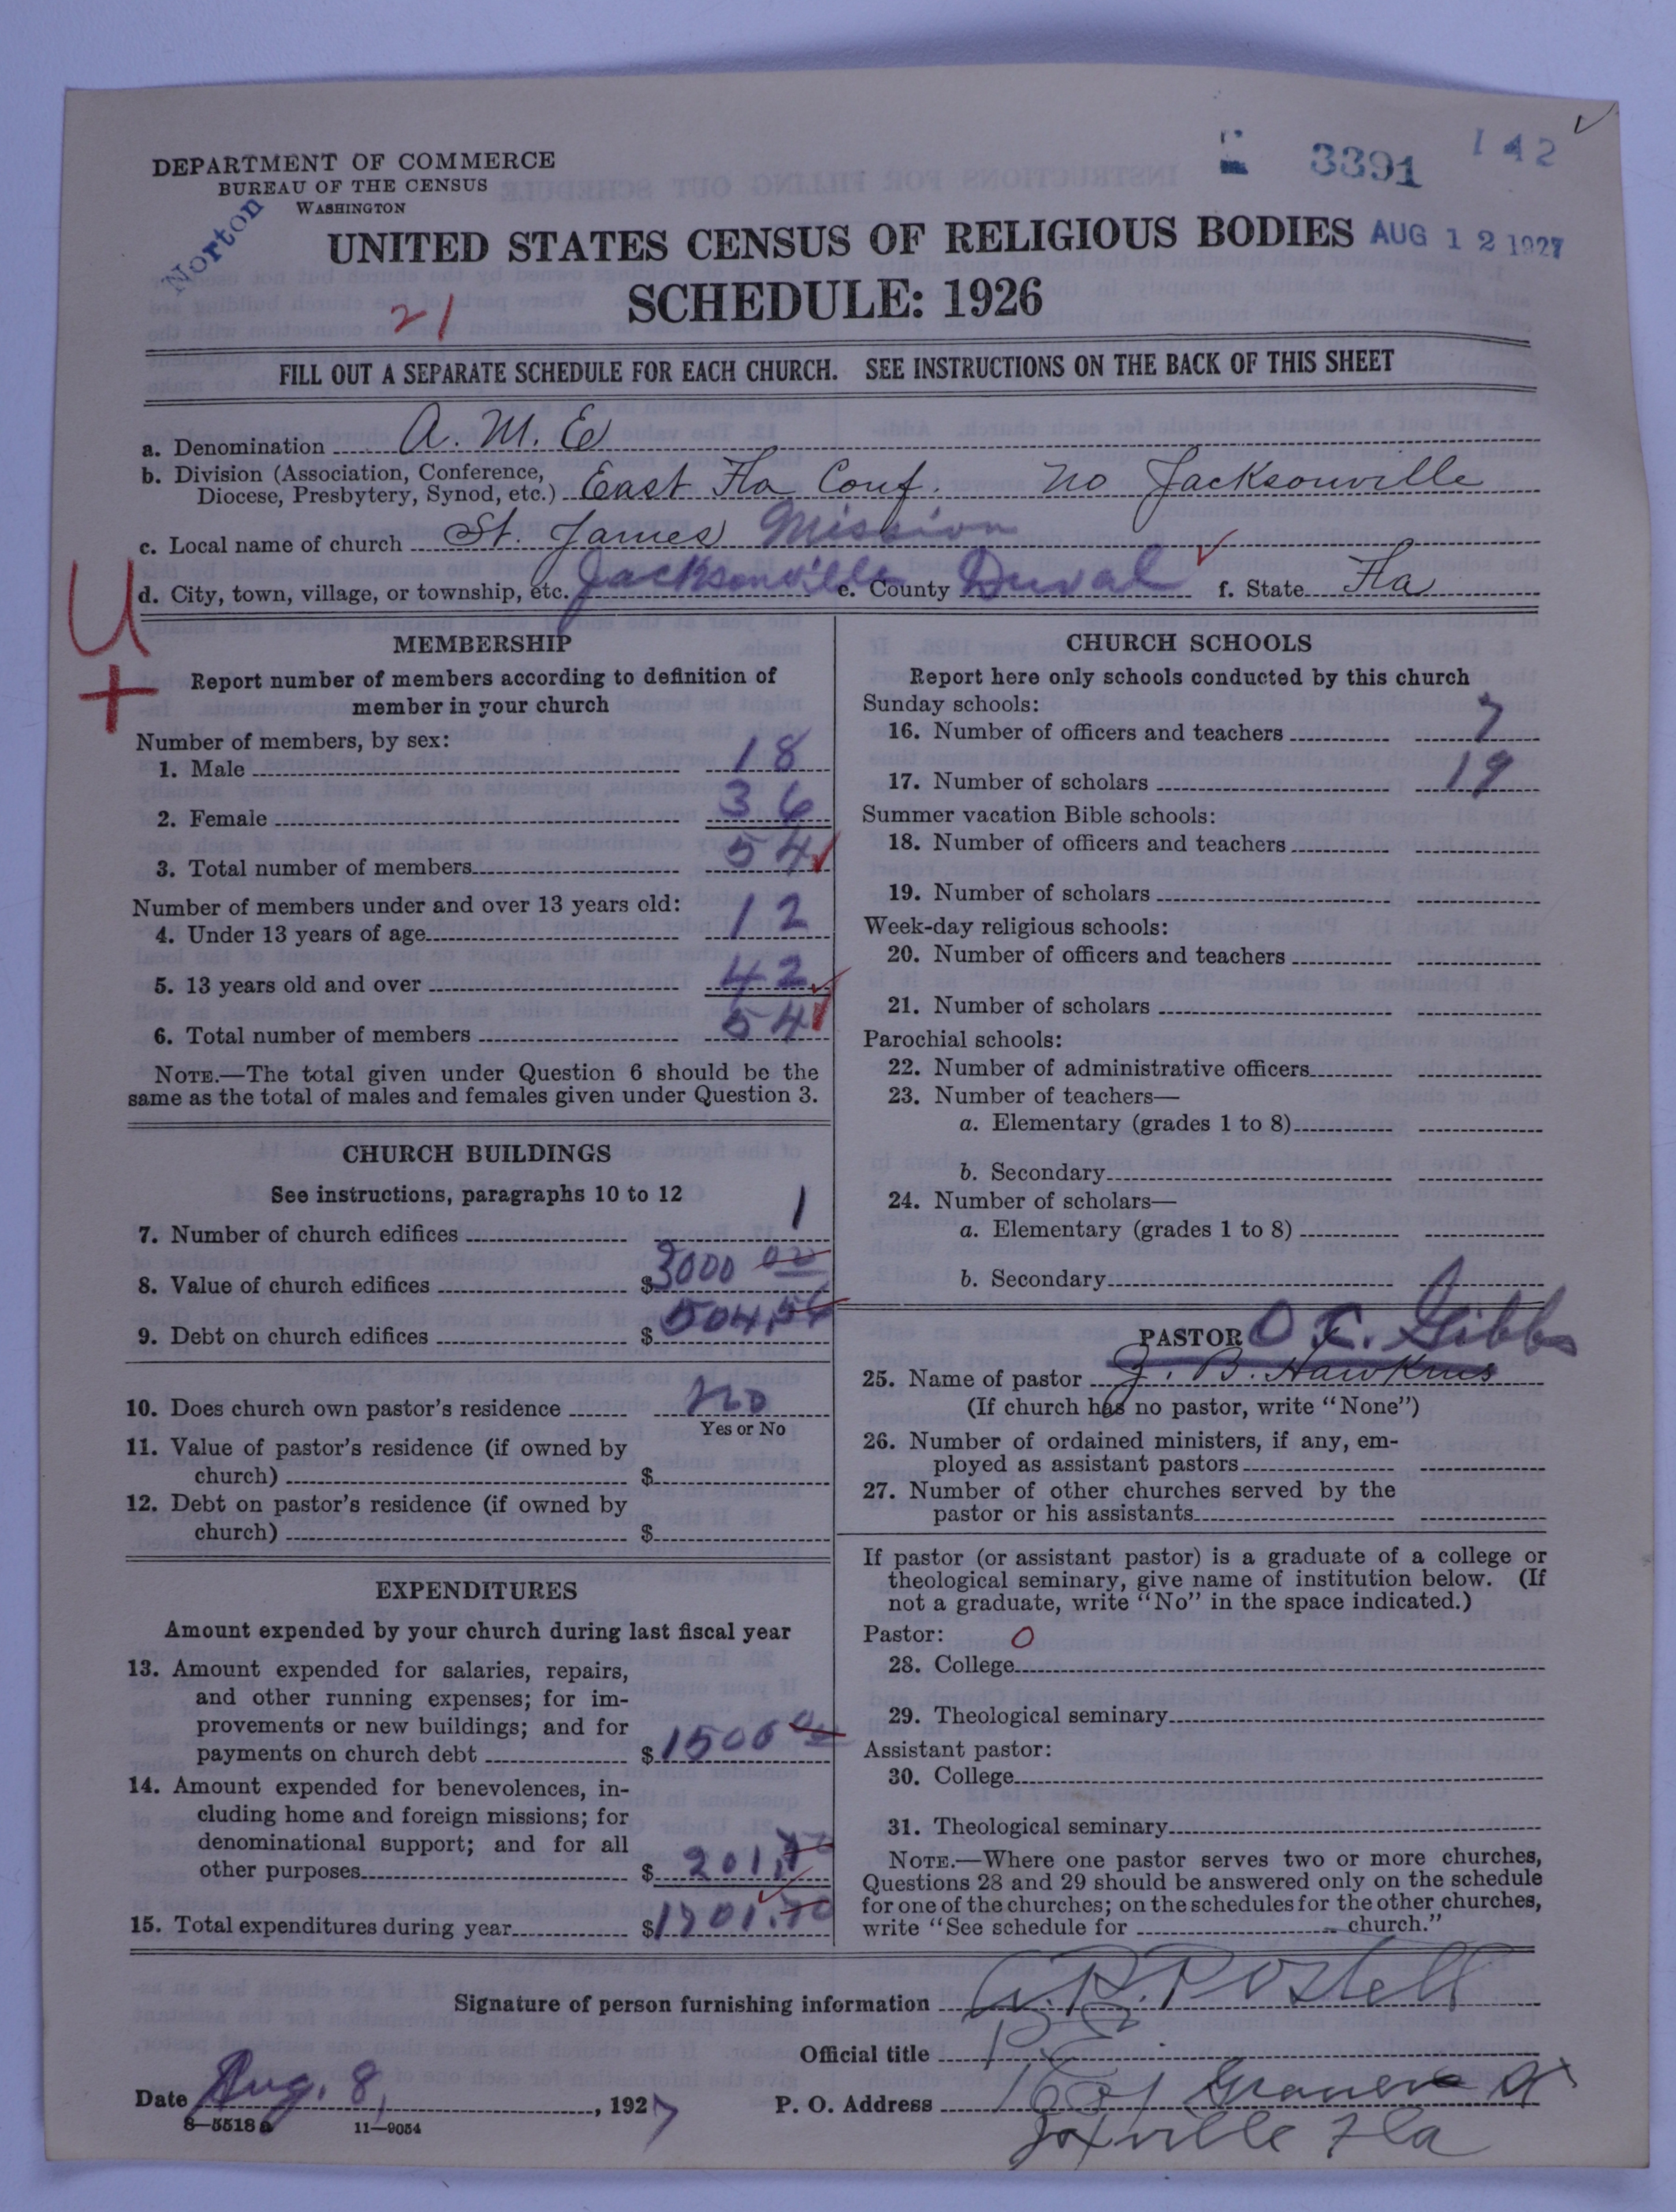 DEPARTMENT OF COMMERCE
BUREAU OF THE CENSUS
WASHINGTON
Norton
3391
142
UNITED STATES CENSUS OF RELIGIOUS BODIES
AUG 12 1927
SCHEDULE: 1926
21
FILL OUT A SEPARATE SCHEDULE FOR EACH CHURCH. SEE INSTRUCTIONS ON THE BACK OF THIS SHEET
a. Denomination A. M. E
b. Division (Association, Conference, Diocese, Presbytery, Synod, etc.) East Fla Conf. no Jacksonville
c. Local name of church St. James Mission
d. City, town, village, or township, etc. Jacksonville e. County Duval f. State Fla
U
+
MEMBERSHIP
Report number of members according to definition of
member in your church
Number of members, by sex:
1. Male 18
2. Female 36
3. Total number of members 54
Number of members under and over 13 years old:
4. Under 13 years of age 12
5. 13 years old and over 42
6. Total number of members 54
NOTE.—The total given under Question 6 should be the
same as the total of males and females given under Question 3.
CHURCH BUILDINGS
See instructions, paragraphs 10 to 12
7. Number of church edifices 1
8. Value of church edifices $3000 00
9. Debt on church edifices $504.54
10. Does church own pastor's residence no
Yes or No
11. Value of pastor's residence (if owned by
church) $
12. Debt on pastor's residence (if owned by
church) $
EXPENDITURES
Amount expended by your church during last fiscal year
13. Amount expended for salaries, repairs,
and other running expenses; for im-
provements or new buildings; and for
payments on church debt $1500 00
14. Amount expended for benevolences, in-
cluding home and foreign missions; for
denominational support; and for all
other purposes $201.70
15. Total expenditures during year $1701.70
CHURCH SCHOOLS
Report here only schools conducted by this church
Sunday schools:
16. Number of officers and teachers 7
17. Number of scholars 19
Summer vacation Bible schools:
18. Number of officers and teachers
19. Number of scholars
Week-day religious schools:
20. Number of officers and teachers
21. Number of scholars
Parochial schools:
22. Number of administrative officers
23. Number of teachers—
a. Elementary (grades 1 to 8)
b. Secondary
24. Number of scholars—
a. Elementary (grades 1 to 8)
b. Secondary
PASTOR O C. Gibbs
25. Name of pastor J. B. Hawkins
(If church has no pastor, write "None")
26. Number of ordained ministers, if any, em-
ployed as assistant pastors
27. Number of other churches served by the
pastor or his assistants
If pastor (or assistant pastor) is a graduate of a college or
theological seminary, give name of institution below. (If
not a graduate, write "No" in the space indicated.)
Pastor: 0
28. College
29. Theological seminary
Assistant pastor:
30. College
31. Theological seminary
NOTE.—Where one pastor serves two or more churches,
Questions 28 and 29 should be answered only on the schedule
for one of the churches; on the schedules for the other churches,
write "See schedule for church."
Signature of person furnishing information A. P. Postell
Official title P. E.
Date Aug. 8, 1927
P. O. Address
Jaxville Fla
8—5518a 11—9054